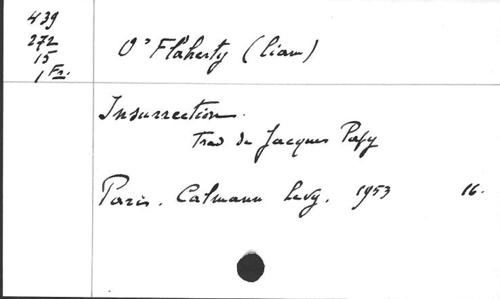 439
272
15
1 Fr.
O'Flaherty (Liam)
Insurrection.
Trad de Jacques Papy
Paris. Calmann Levy. 1953 16.